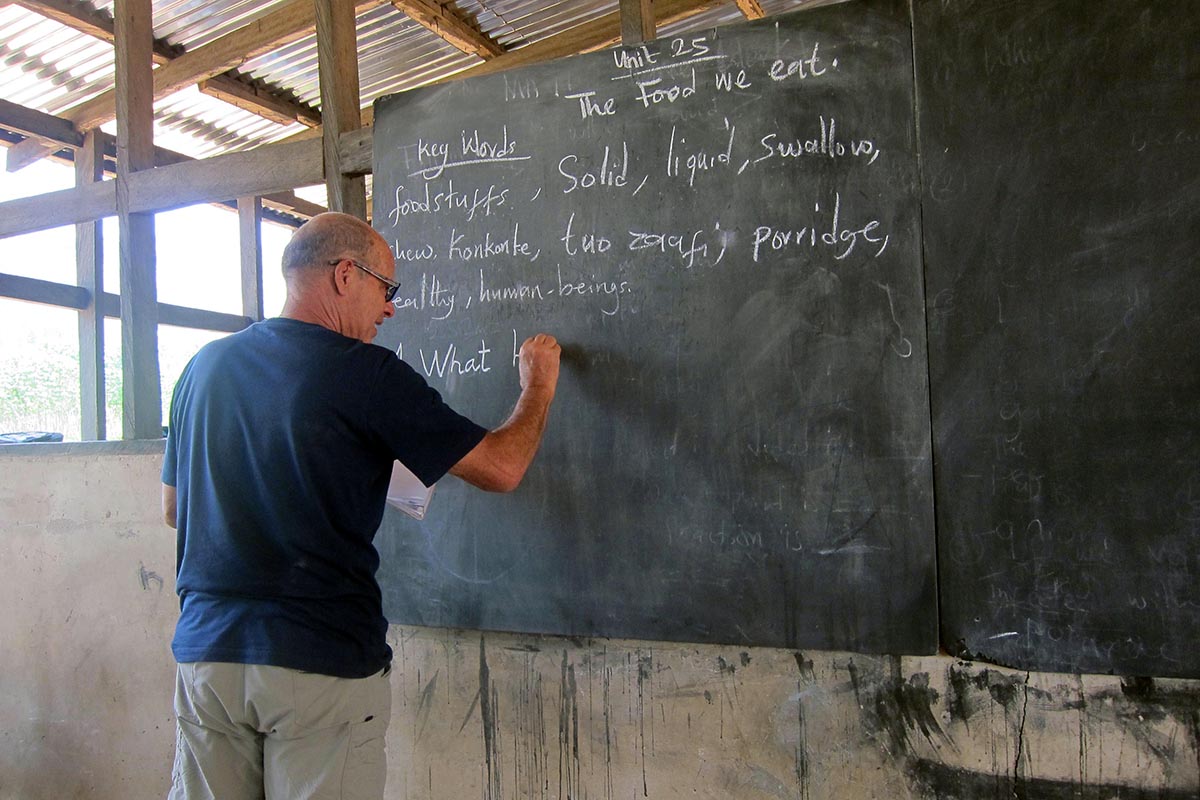 Unit 25
The Food we eat.
Key Words
foodstuffs, Solid, liquid, swallow,
hew, Konkonte, tuo zaafi, porridge,
ealthy, human-beings.
What